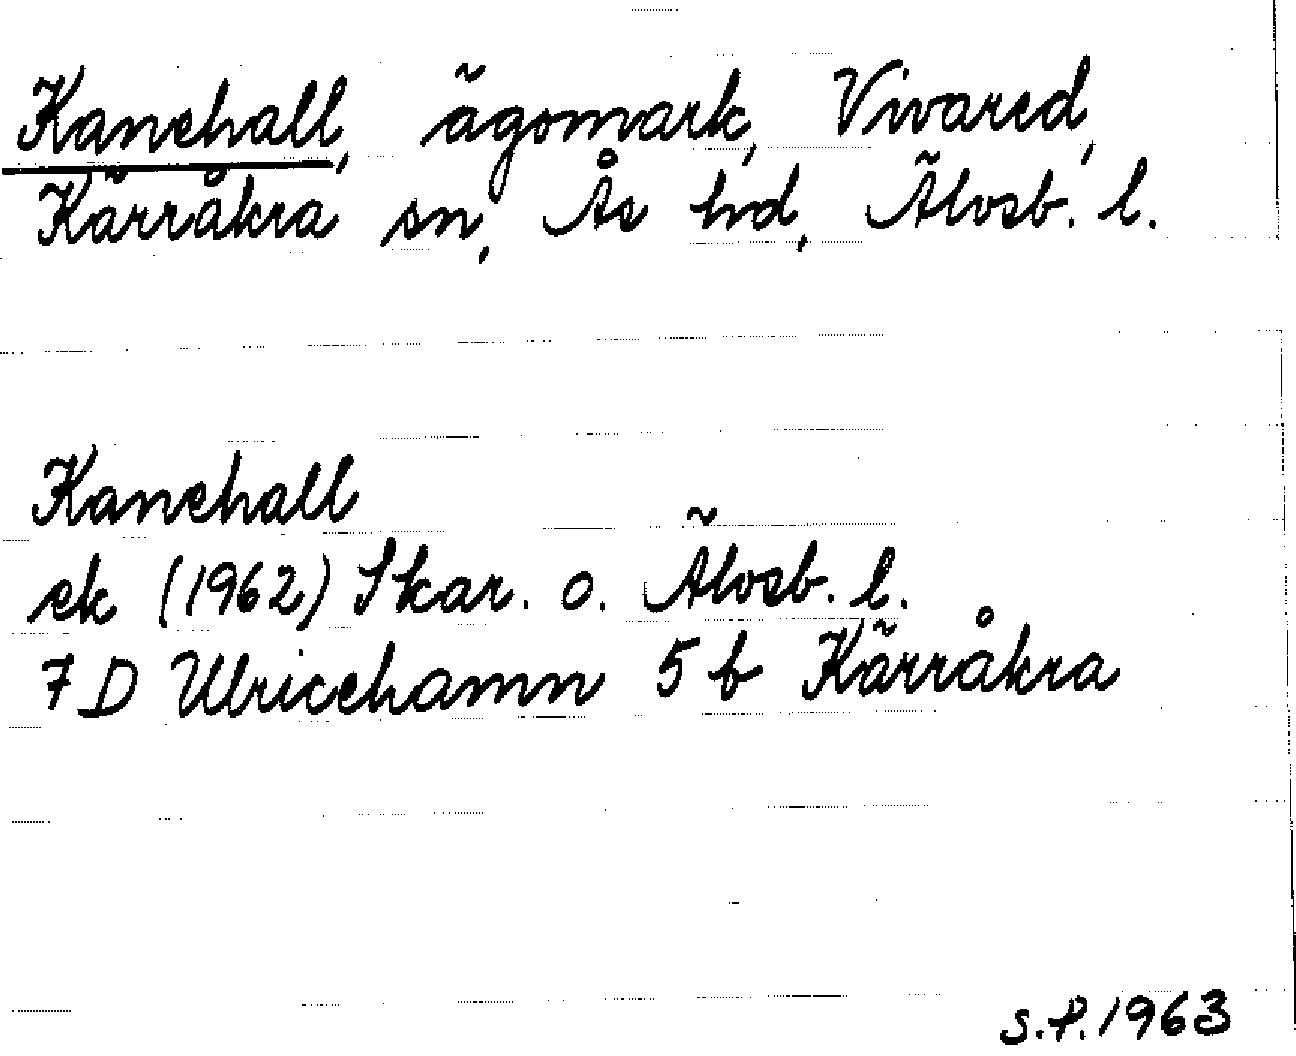 Kanehall, ägomark, Vivared,
Kärråkra sn, Ås hd, Älvsb. l.
Kanehall
ek (1962) Skar. o. Älvsb. l.
7 D Ulricehamn 5 b Kärråkra
S.P. 1963